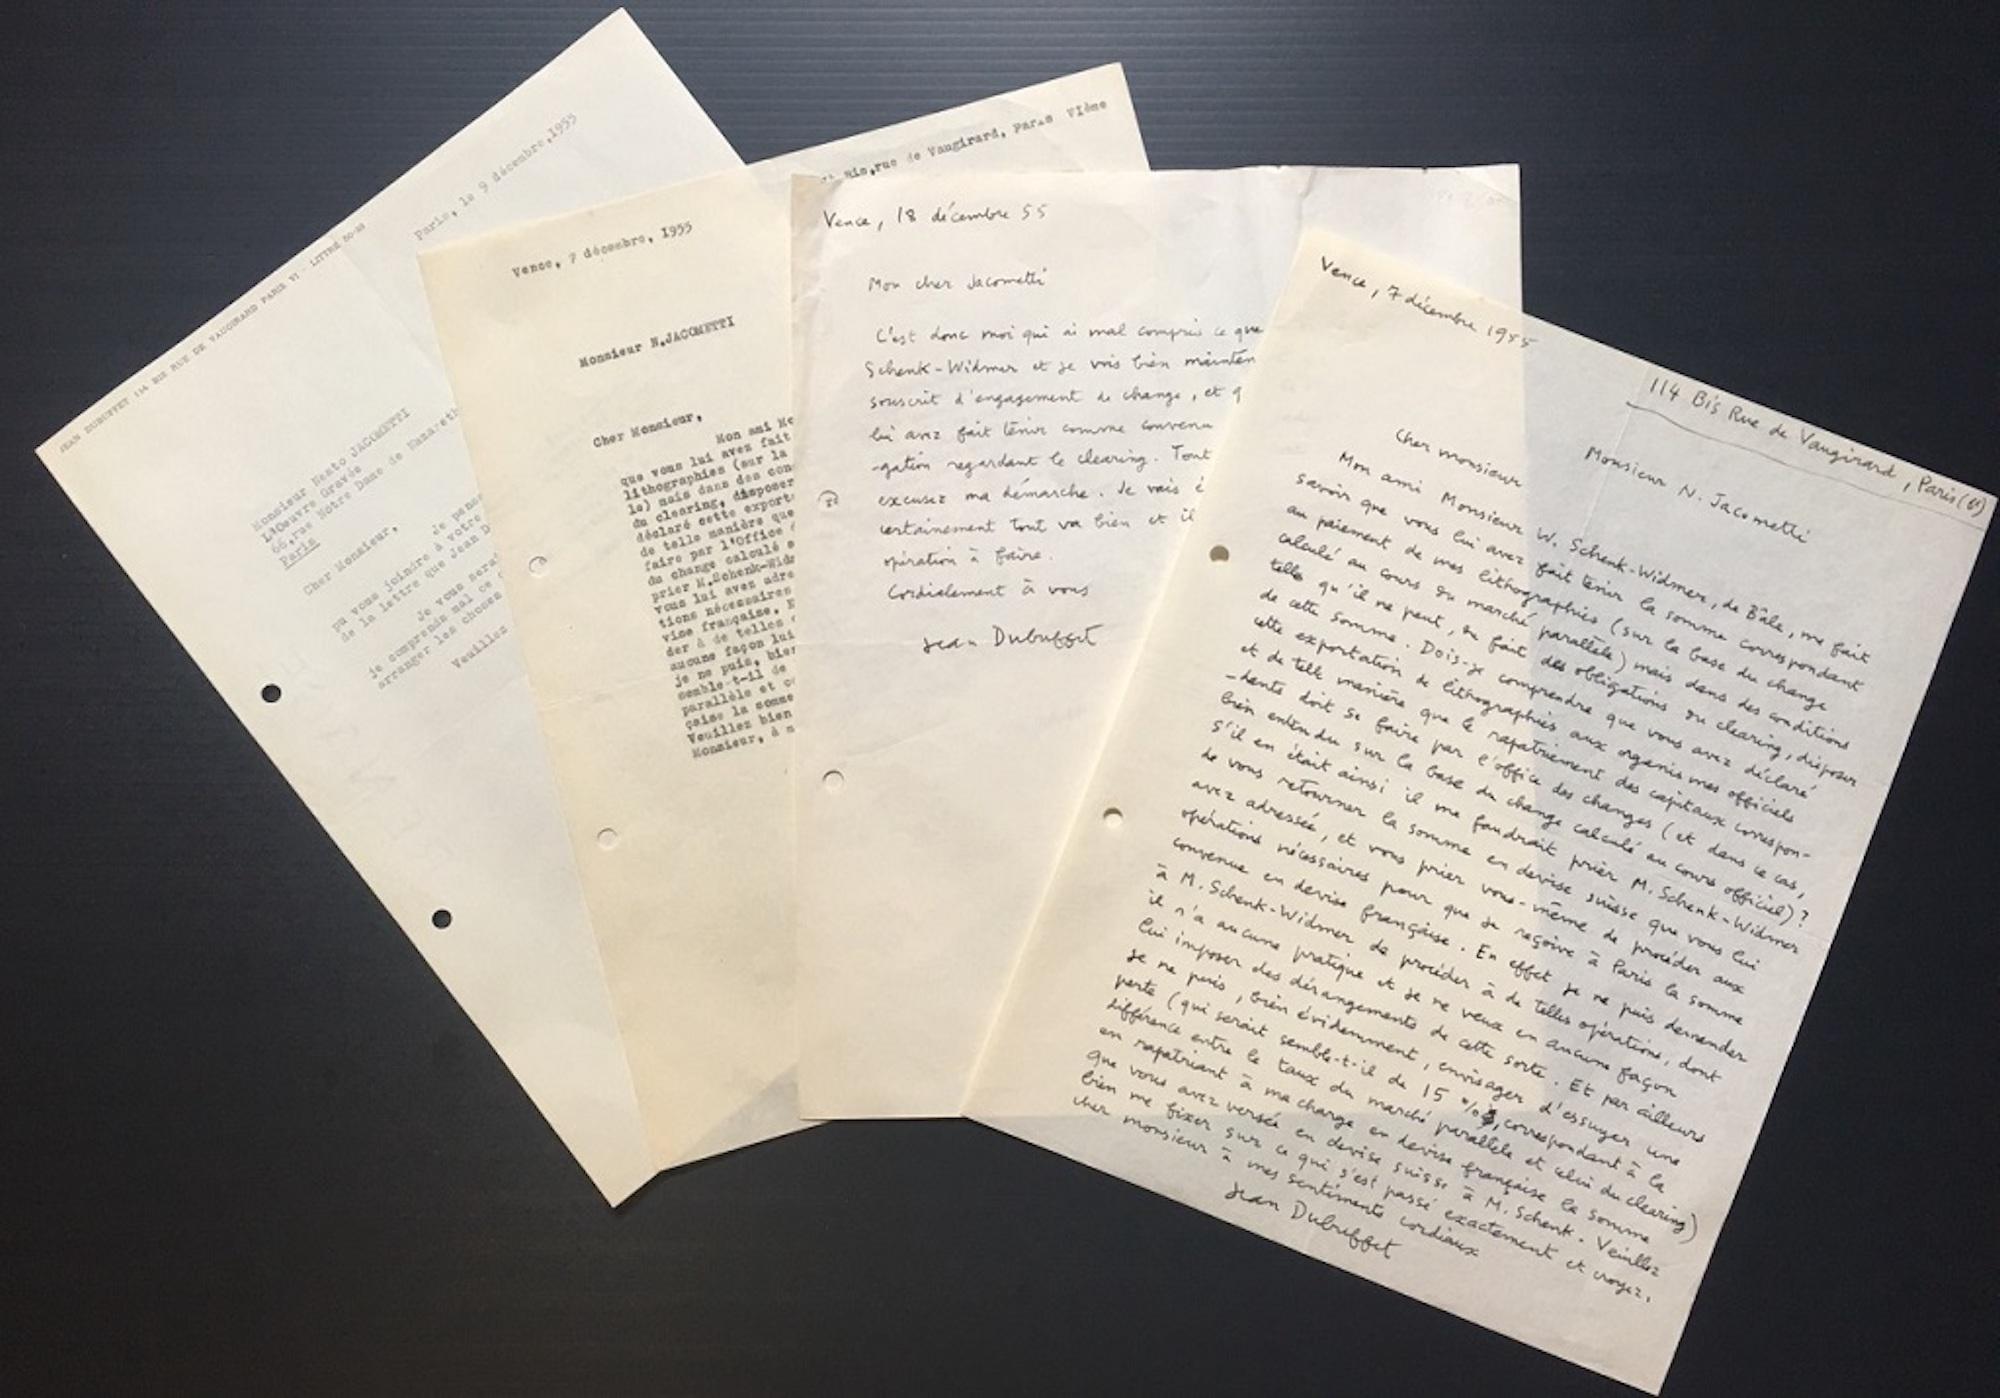 JEAN DUBUFFET 114 BIS RUE DE VAUGIRARD PARIS VI - LITTRÉ
Paris, le 9 décembre,1955
Monsieur Nesto JACOMETTI
L'Oeuvre Gravée
66,rue Notre Dame de Nazareth
Paris
Cher Monsieur,
Je pense
pu vous joindre à votre
de la lettre que Jean D
Je vous serai
je comprends mal ce
arranger les choses
Veuillez
Bis,rue de Vaugirard, Paris VIème
Vence, 7 décembre, 1955
Monsieur N.JACOMETTI
Cher Monsieur,
Mon ami Mo
que vous lui avez fait
lithographies (sur la
le) mais dans des con
du clearing, disposer
déclaré cette export
de telle manière que
faire par l'Office
du change calculé
prier M.Schenk-Wid
vous lui avez adre
tions nécessaires
vise française. E
der à de telles
aucune façon lui
je ne puis, bien
semble-t-il de
parallèle et
çaise la somme
Veuillez bien
Monsieur, à m
Vence, 18 décembre 55
Mon cher Jacometti
C'est donc moi qui ai mal compris ce que
Schenk-Widmer et je vois bien mainten
souscrit d'engagement de change, et q
lui avez fait tenir comme convenu
-gation regardant le clearing. Tout
excusez ma démarche. Je vais é
certainement tout va bien et il
opération à faire.
Cordialement à vous
Jean Dubuffet
Vence, 7 décembre 1955
114 Bis Rue de Vaugirard, Paris (6e)
Monsieur N. Jacometti
Cher monsieur
Mon ami Monsieur W. Schenk-Widmer, de Bâle, me fait
savoir que vous lui avez fait tenir la somme correspondant
au paiement de mes lithographies (sur la base du change
calculé au cours du marché parallèle) mais dans des conditions
telles qu'il ne peut, du fait des obligations du clearing, disposer
de cette somme. Dois-je comprendre que vous avez déclaré
cette exportation de lithographies aux organismes officiels
et de telle manière que le rapatriement des capitaux correspon-
-dants doit se faire par l'office des changes (et dans ce cas,
bien entendu sur la base du change calculé au cours officiel) ?
S'il en était ainsi il me faudrait prier M. Schenk-Widmer
de vous retourner la somme en devise suisse que vous lui
avez adressée, et vous prier vous-même de procéder aux
opérations nécessaires pour que je reçoive à Paris la somme
convenue en devise française. En effet je ne puis demander
à M. Schenk-Widmer de procéder à de telles opérations, dont
il n'a aucune pratique et je ne veux en aucune façon
lui imposer des dérangements de cette sorte. Et par ailleurs
je ne puis, bien évidemment, envisager d'essuyer une
perte (qui serait semble-t-il de 15 %, correspondant à la
différence entre le taux du marché parallèle et celui du clearing)
en rapatriant à ma charge en devise française la somme
que vous avez versée en devise suisse à M. Schenk. Veuillez
bien me fixer sur ce qui s'est passé exactement et croyez,
cher monsieur à mes sentiments cordiaux
Jean Dubuffet